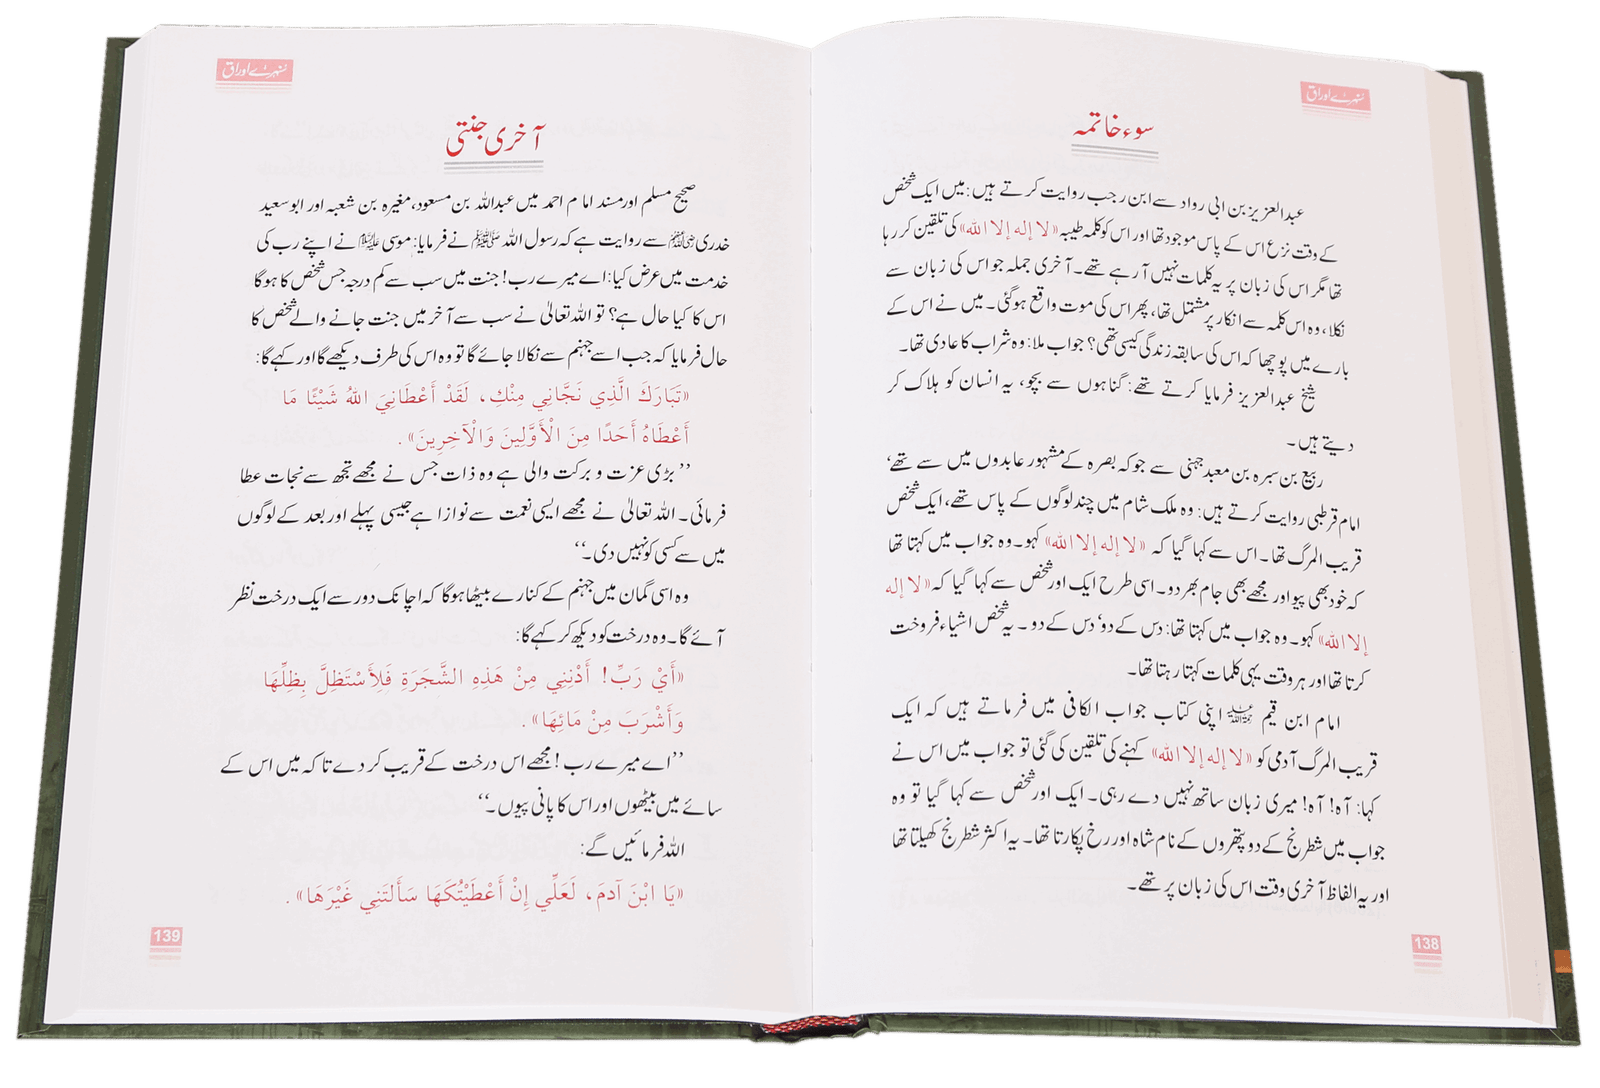 سنہرے اوراق
سوء خاتمہ
عبدالعزیز بن ابی رواد سے ابن رجب روایت کرتے ہیں: میں ایک شخص
کے وقت نزع اس کے پاس موجود تھا اور اس کو کلمہ طیبہ «لا إله إلا الله» کی تلقین کر رہا
تھا مگر اس کی زبان پر یہ کلمات نہیں آ رہے تھے۔ آخری جملہ جو اس کی زبان سے
نکلا، وہ اس کلمہ سے انکار پر مشتمل تھا، پھر اس کی موت واقع ہوگئی۔ میں نے اس کے
بارے میں پوچھا کہ اس کی سابقہ زندگی کیسی تھی؟ جواب ملا: وہ شراب کا عادی تھا۔
شیخ عبدالعزیز فرمایا کرتے تھے: گناہوں سے بچو، یہ انسان کو ہلاک کر
دیتے ہیں۔
ربیع بن سبرہ بن معبد جہنی سے جو کہ بصرہ کے مشہور عابدوں میں سے تھے،
امام قرطبی روایت کرتے ہیں: وہ ملک شام میں چند لوگوں کے پاس تھے، ایک شخص
قریب المرگ تھا۔ اس سے کہا گیا کہ «لا إله إلا الله» کہو۔ وہ جواب میں کہتا تھا
کہ خود بھی پیو اور مجھے بھی جام بھر دو۔ اسی طرح ایک اور شخص سے کہا گیا کہ «لا إله
إلا الله» کہو۔ وہ جواب میں کہتا تھا: دس کے دو، دس کے دو۔ یہ شخص اشیاء فروخت
کرتا تھا اور ہر وقت یہی کلمات کہتا رہتا تھا۔
امام ابن قیم رحمہ اللہ اپنی کتاب جواب الکافی میں فرماتے ہیں کہ ایک
قریب المرگ آدمی کو «لا إله إلا الله» کہنے کی تلقین کی گئی تو جواب میں اس نے
کہا: آہ! آہ! میری زبان ساتھ نہیں دے رہی۔ ایک اور شخص سے کہا گیا تو وہ
جواب میں شطرنج کے دو پتھروں کے نام شاہ اور رخ پکارتا تھا۔ یہ اکثر شطرنج کھیلتا تھا
اور یہ الفاظ آخری وقت اس کی زبان پر تھے۔
138
سنہرے اوراق
آخری جنتی
صحیح مسلم اور مسند امام احمد میں عبداللہ بن مسعود، مغیرہ بن شعبہ اور ابو سعید
خدری رضی اللہ عنہم سے روایت ہے کہ رسول اللہ ﷺ نے فرمایا: موسیٰ علیہ السلام نے اپنے رب کی
خدمت میں عرض کیا: اے میرے رب! جنت میں سب سے کم درجہ جس شخص کا ہوگا
اس کا کیا حال ہے؟ تو اللہ تعالیٰ نے سب سے آخر میں جنت جانے والے شخص کا
حال فرمایا کہ جب اسے جہنم سے نکالا جائے گا تو وہ اس کی طرف دیکھے گا اور کہے گا:
«تَبَارَكَ الَّذِي نَجَّانِي مِنْكِ، لَقَدْ أَعْطَانِيَ اللهُ شَيْئًا مَا
أَعْطَاهُ أَحَدًا مِنَ الْأَوَّلِينَ وَالْآخِرِينَ».
’’بڑی عزت و برکت والی ہے وہ ذات جس نے مجھے تجھ سے نجات عطا
فرمائی۔ اللہ تعالیٰ نے مجھے ایسی نعمت سے نوازا ہے جیسی پہلے اور بعد کے لوگوں
میں سے کسی کو نہیں دی۔‘‘
وہ اسی گمان میں جہنم کے کنارے بیٹھا ہوگا کہ اچانک دور سے ایک درخت نظر
آئے گا۔ وہ درخت کو دیکھ کر کہے گا:
«أَيْ رَبِّ! أَدْنِنِي مِنْ هَذِهِ الشَّجَرَةِ فَلِأَسْتَظِلَّ بِظِلِّهَا
وَأَشْرَبَ مِنْ مَائِهَا».
’’اے میرے رب! مجھے اس درخت کے قریب کر دے تاکہ میں اس کے
سائے میں بیٹھوں اور اس کا پانی پیوں۔‘‘
اللہ فرمائیں گے:
«يَا ابْنَ آدمَ، لَعَلِّي إِنْ أَعْطَيْتُكَهَا سَأَلتَنِي غَيْرَهَا».
139